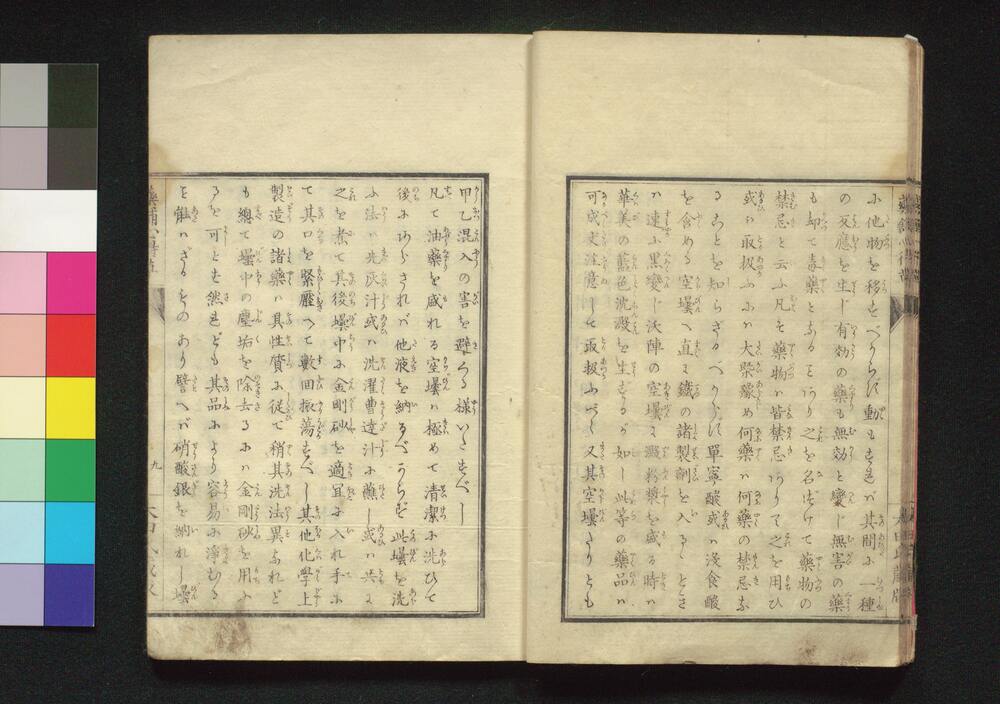 に他物を移すべからず動もすれバ其間に一種
の反應を生じ有効の藥も無効と變じ無害の藥
も却て毒藥となることあり之を名づけて藥物の
禁忌と云ふ凡そ藥物ハ皆禁忌ありて之を用ひ
或ハ取扱ふにハ大槩豫め何藥ハ何藥の禁忌な
ることを知らざるべからず單寧酸或ハ沒食酸
を含める空壜へ直に鐵の諸製劑を入るゝとき
ハ速に黒變じ沃陣の空壜に澱粉類を盛る時ハ
華美の藍色沈澱を生ずるが如し此等の藥品ハ
可成丈注意して取扱ふべし又其空壜たりとも
甲乙混入の害を避くる様いたすべし
凡て油藥を盛れる空壜ハ極めて清潔に洗ひて
後にあらざれバ他液を納るべからず此壜を洗
ふ法ハ先灰汁或ハ洗濯曹達汁に蘸し或ハ共に
之を煮て其後壜中に金剛砂を適宜に入れ手に
て其口を緊壓へて數回振蕩すべし其他化學上
製造の諸藥ハ其性質に從て稍其洗法異なれど
も總て壜中の塵垢を除去るにハ金剛砂を用ふ
るを可とす然れども其品により容易に淨むる
を能ハざるものあり譬へバ硝酸銀を納れし壜
九